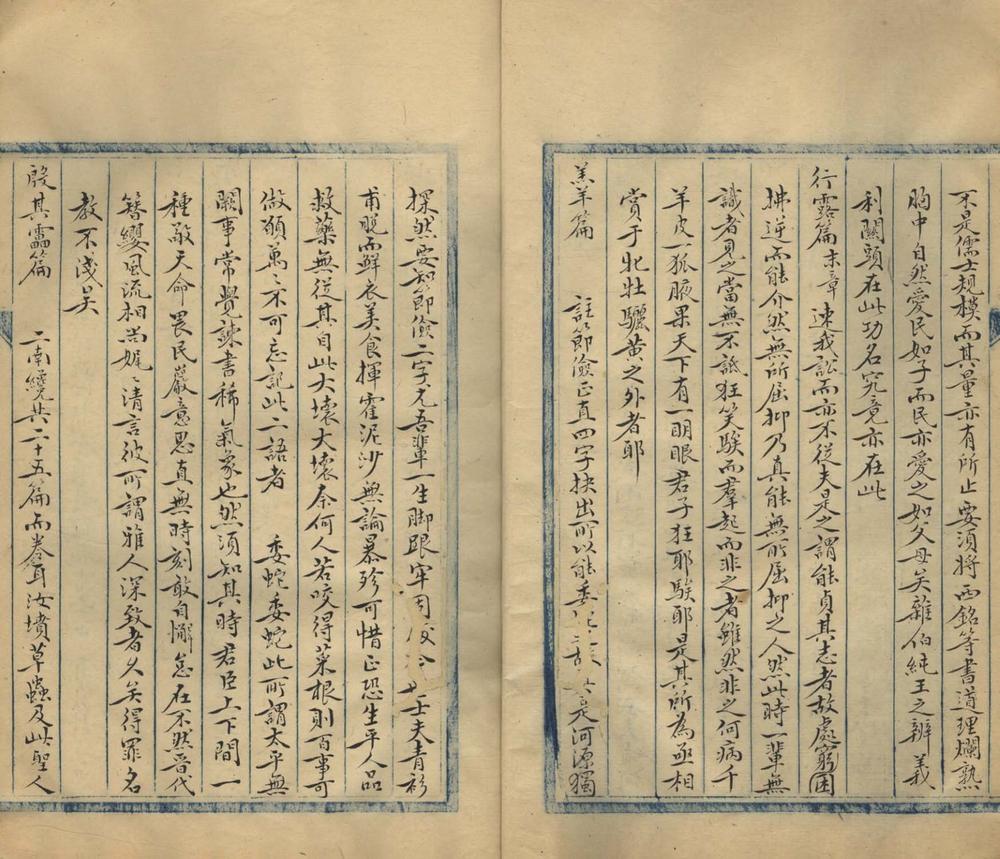 不是儒士規模而其量亦有所止要須將西銘等書道理爛熟
胸中自然愛民如子而民亦愛之如父母矣雜伯純王之辨義
利關頭在此功名究竟亦在此
行露篇末章速我訟而亦不從夫是之謂能貞其志者故處窮困
拂逆而能介然無所屈抑乃真能無所屈抑之人然此時一輩無
識者見之當無不詆狂笑騃而羣起而非之者雖然非之何病千
羊皮一狐腋果天下有一明眼君子狂耶騃耶是其所為亟相
賞于牝牡驪黃之外者耶
羔羊篇 註節儉正直四字抉出所以能委是河源獨
探然要知節儉二字尤吾輩一生脚跟牢固士夫青衫
甫脫而鮮衣美食揮霍泥沙無論暴殄可惜正恐生平人品
救藥無從其自此大壞大壞奈何人若咬得菜根則百事可
做願萬ミ不可忘記此二語者 委蛇委蛇此所謂太平無
闕事常覺諫書稀氣象也然須知其時君臣上下間一
種敬天命畏民巖意思直無時刻敢自懈怠在不然晉代
簪纓風流相尚娓ミ清言彼所謂雅人深致者久矣得罪名
教不淺矣
殷其靁篇 二南纔共二十五篇而卷耳汝墳草蟲及此聖人